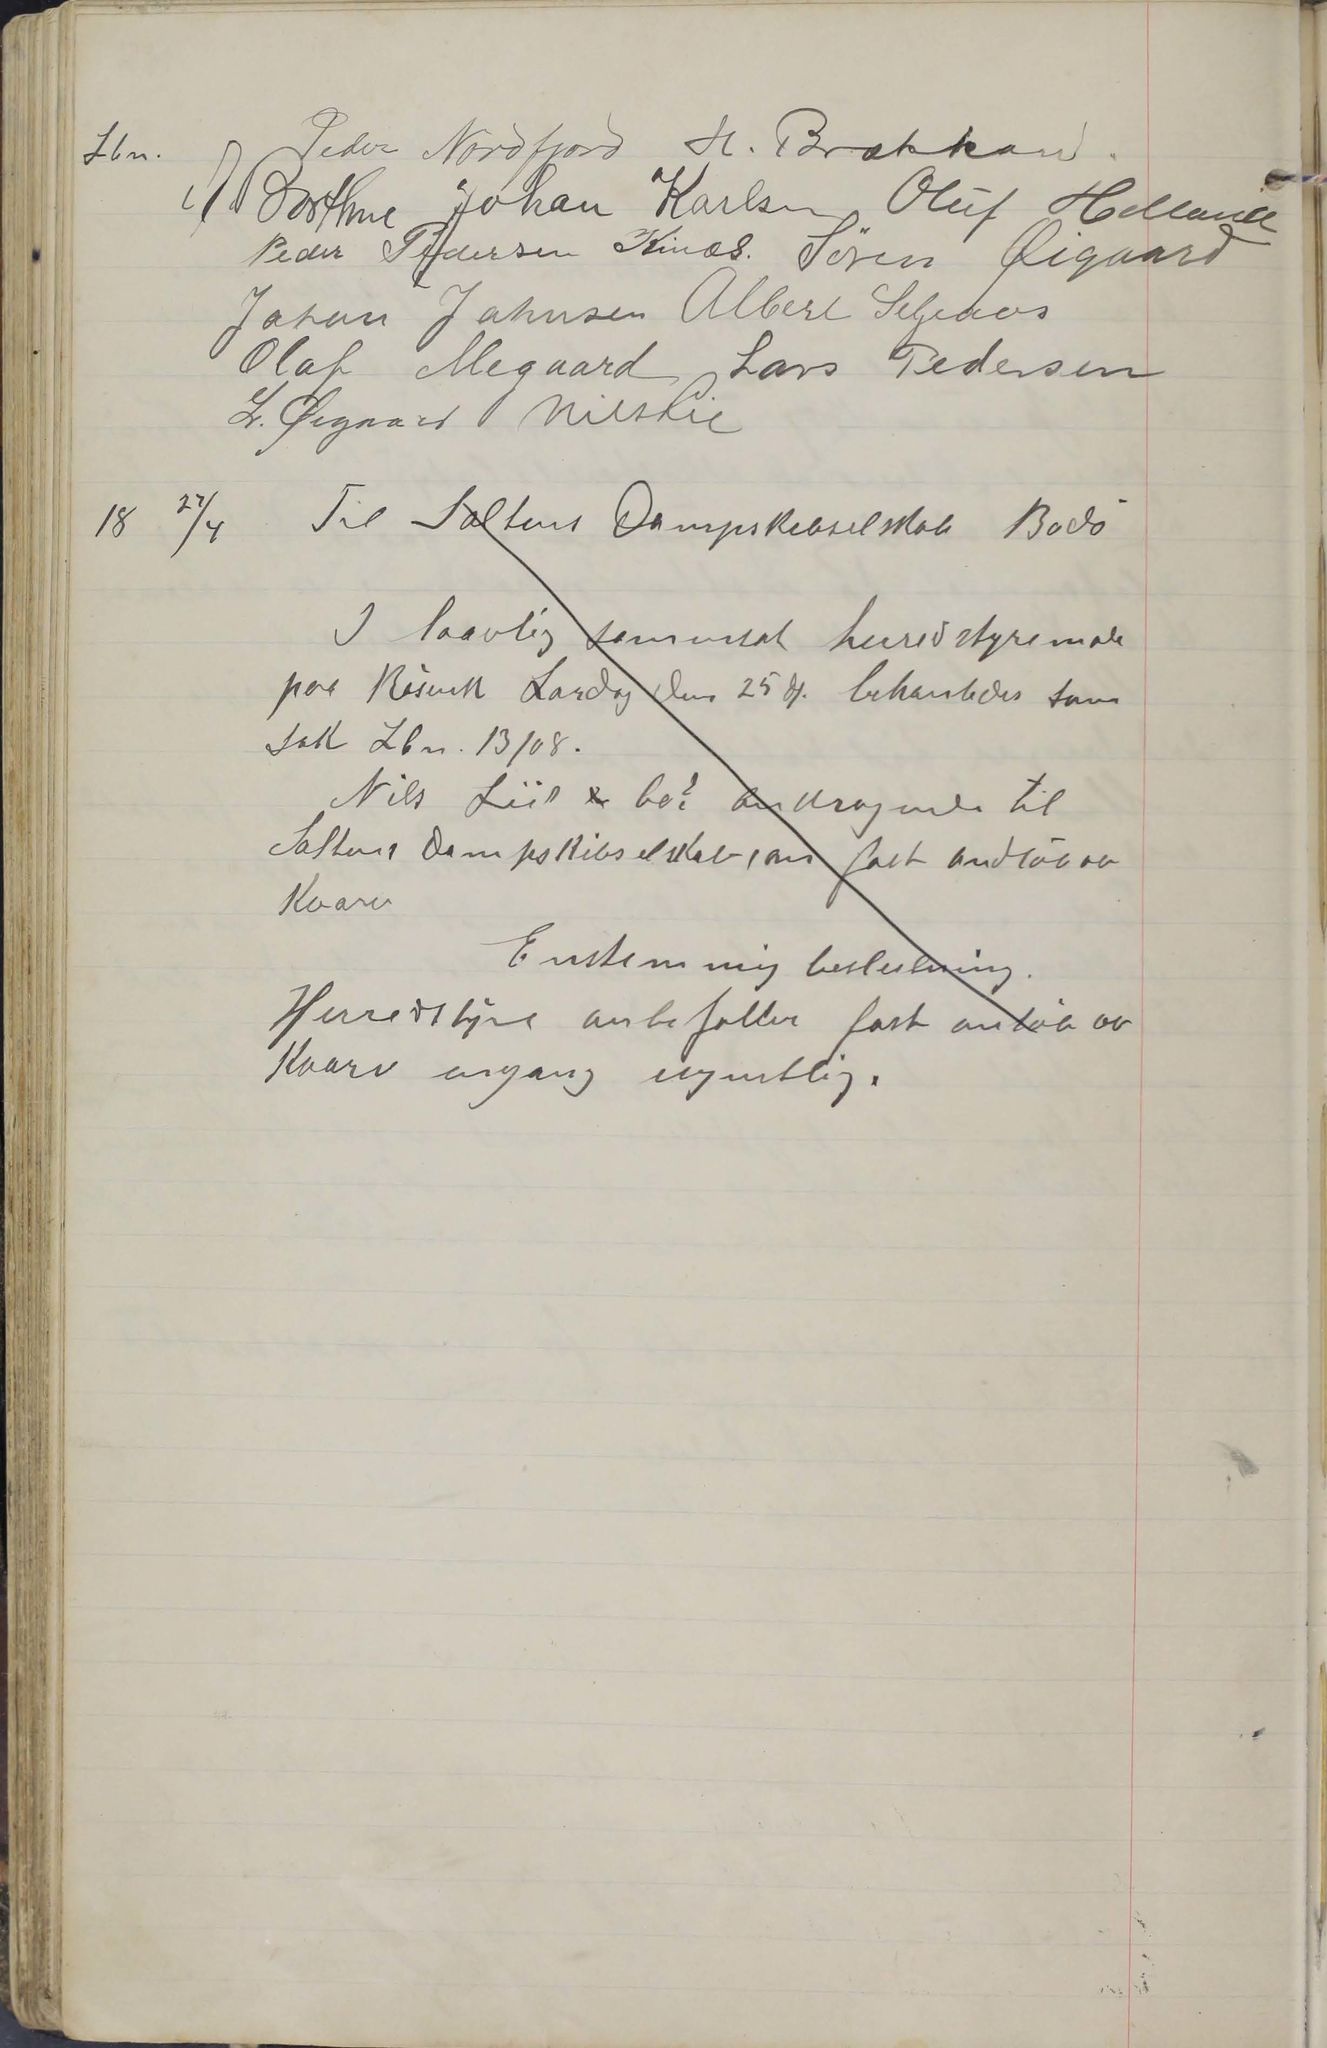 Lbn. Peder Nordfjord H. Brækkan.
Johan Karlsen Oluf Helland
Peder Pedersen Kinæs. Sören Øigaard
Johan Johnsen Albert Seljeaas
Olaf Megaard Lars Pedersen
L. Øigaard Nils Lie
18 27/4 Til Saltens Dampskibselskab Bodö
I laavlig sammensat herredstyremøde
paa Rösvik Lørdag den 25 ds. behandledes som
sak Lbn. 13/08.
Nils Lies andragende til
Saltens Dampskibselskab om fast anlöb av
Kvarv
Enstemmig beslutning.
Herredstyre anbefaller fast anlöb av
Kvarv engang ugentlig.